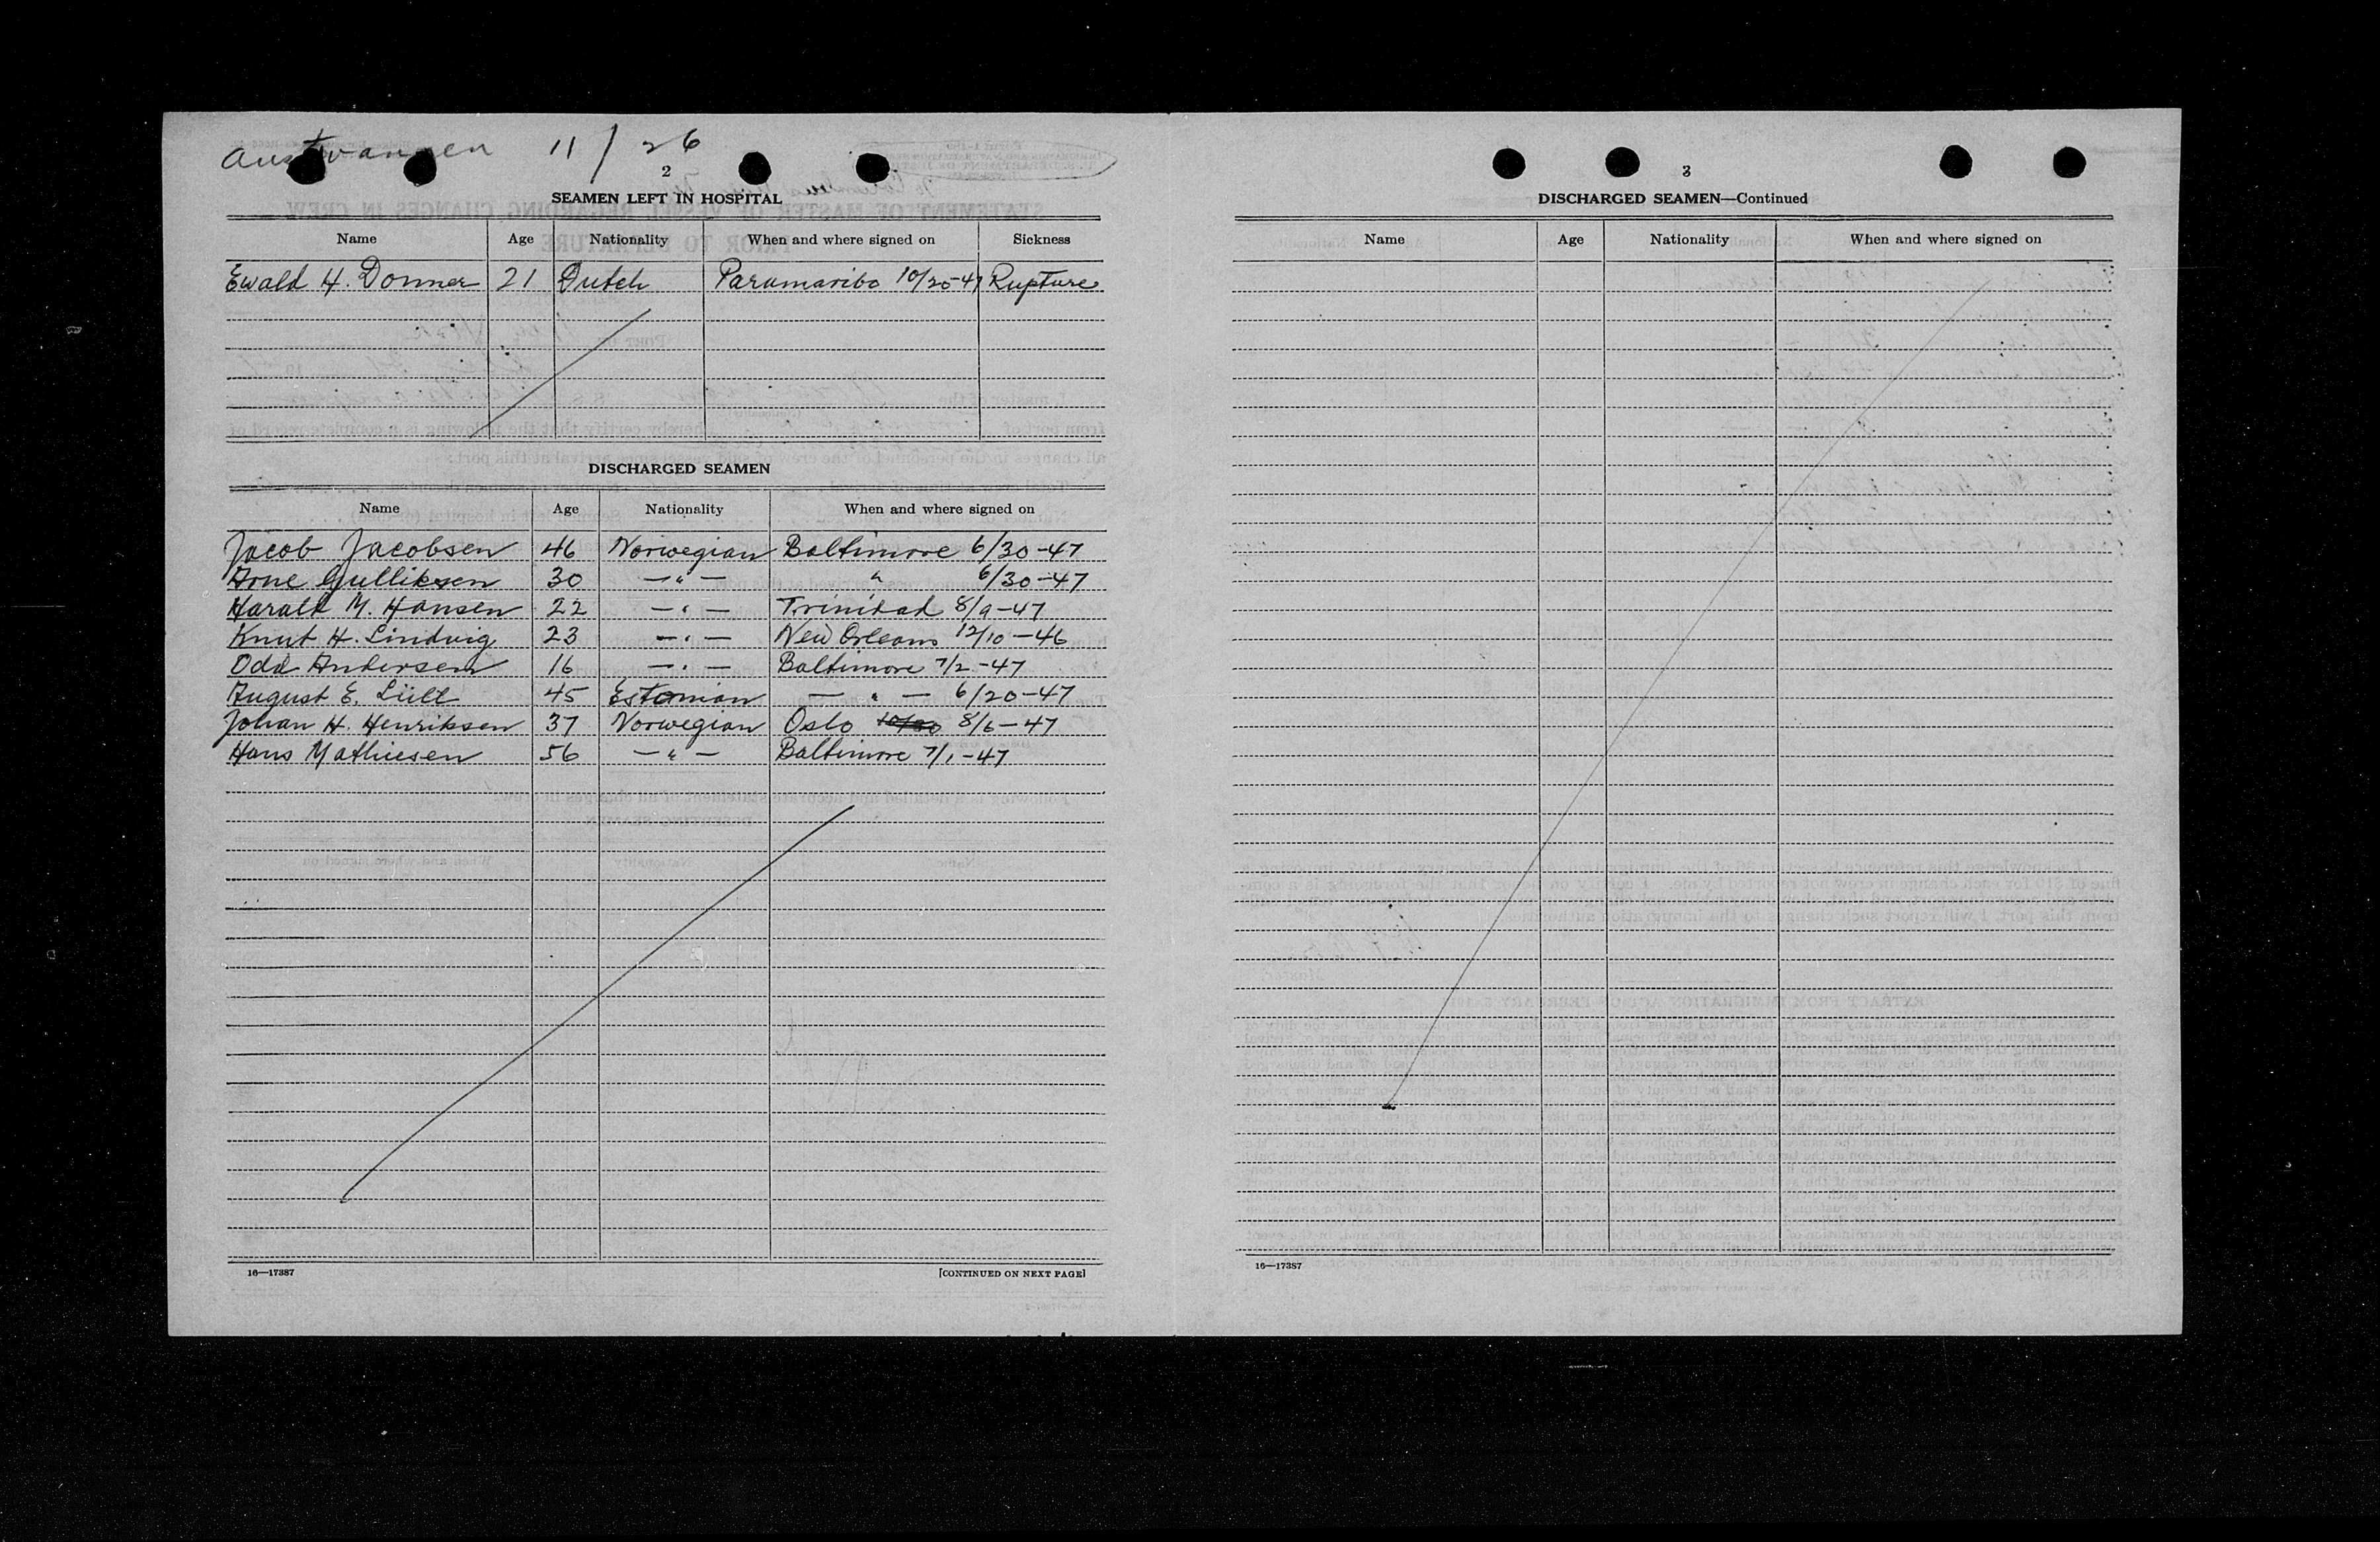 Austvangen 11/26
2
SEAMEN LEFT IN HOSPITAL
Name Age Nationality When and where signed on Sickness
Ewald H. Donner 21 Dutch Paramaribo 10/20-47 Rupture
DISCHARGED SEAMEN
Name Age Nationality When and where signed on
Jacob Jacobsen 46 Norwegian Baltimore 6/30-47
Arne Gulliksen 30 —"— " 6/30-47
Harald M. Hansen 22 —"— Trinidad 8/9-47
Knut H. Lindvig 23 —"— New Orleans 12/10-46
Odd Andersen 16 —"— Baltimore 7/2-47
August E. Lüll 45 Estonian —"— 6/20-47
Johan H. Henriksen 37 Norwegian Oslo 8/6-47
Hans Mathiesen 56 —"— Baltimore 7/1-47
16—17387 [CONTINUED ON NEXT PAGE]
3
DISCHARGED SEAMEN—Continued
Name Age Nationality When and where signed on
16—17387